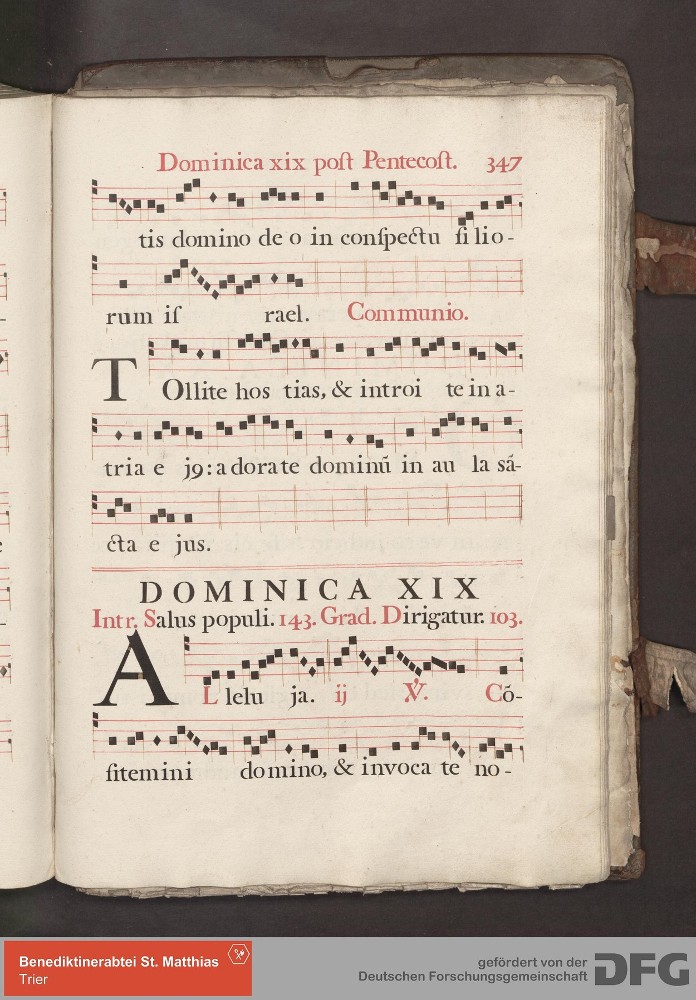 Dominica xix poſt Pentecoſt. 347
tis domino de o in conſpectu fi lio-
rum iſ rael. Communio.
TOllite hos tias, & introi te in a-
tria e j9: a dora te dominū in au la sā-
cta e jus.
DOMINICA XIX
Intr. Salus populi. 143. Grad. Dirigatur. 103.
AL lelu ja. ij ℣. Cō-
fitemini domino, & invoca te no-
Benediktinerabtei St. Matthias
Trier
gefördert von der
Deutschen Forschungsgemeinschaft
DFG